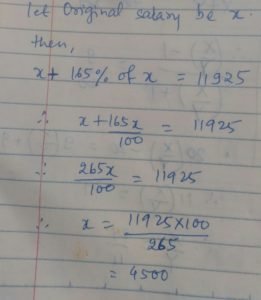 let Original salary be x.
then,
x + 165% of x = 11925
∴ x + 165x/100 = 11925
∴ 265x/100 = 11925
∴ x = 11925×100/265
= 4500